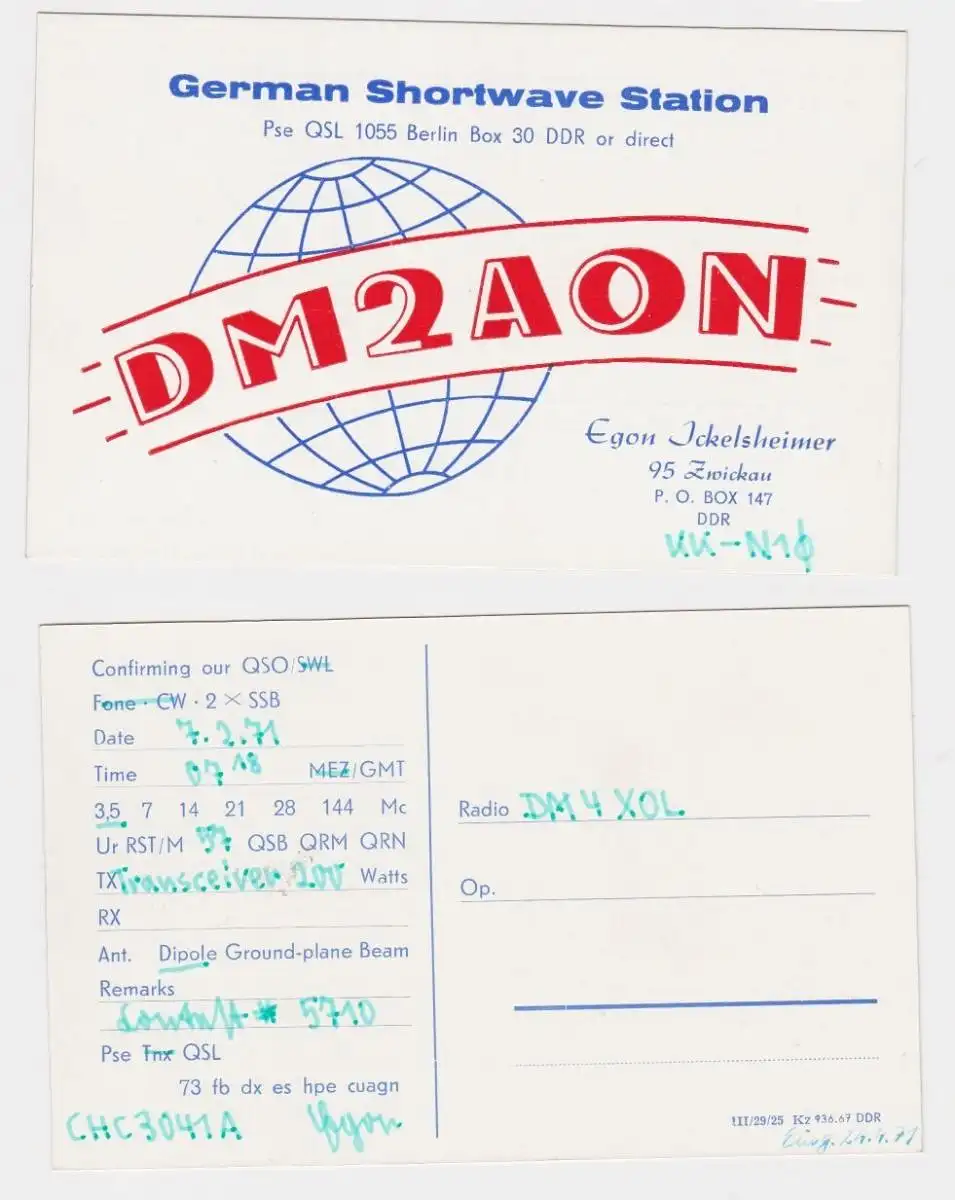 German Shortwave Station
Pse QSL 1055 Berlin Box 30 DDR or direct
DM2AON
Egon Ickelsheimer
95 Zwickau
P. O. BOX 147
DDR
KK-N1ϕ
Confirming our QSO/SWL
Fone · CW · 2 × SSB
Date 7.2.71
Time 07 18 MEZ/GMT
3,5 7 14 21 28 144 Mc
Ur RST/M 57 QSB QRM QRN
TX Transceiver 200 Watts
RX
Ant. Dipole Ground-plane Beam
Remarks
Contakt # 5710
Pse Tnx QSL
73 fb dx es hpe cuagn
CHC3041A Egon
Radio DM4XOL
Op.
III/29/25 Kz 936.67 DDR